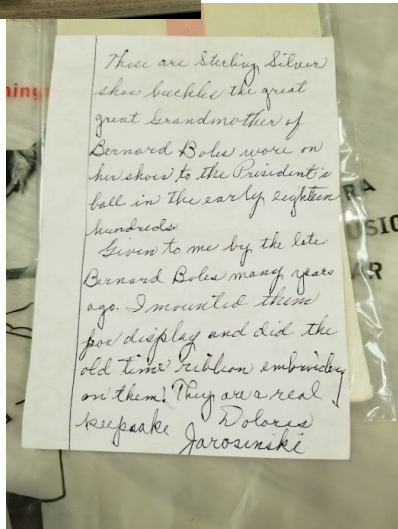 These are Sterling Silver
shoe buckles the great
great Grandmother of
Bernard Boles wore on
her shoes to the President's
ball in the early eighteen
hundreds
Given to me by the late
Bernard Boles many years
ago. I mounted them
for display and did the
old time ribbon embroidery
on them! They are a real
keepsake Dolores
Jarosinski
ning
RA
USIC
AR